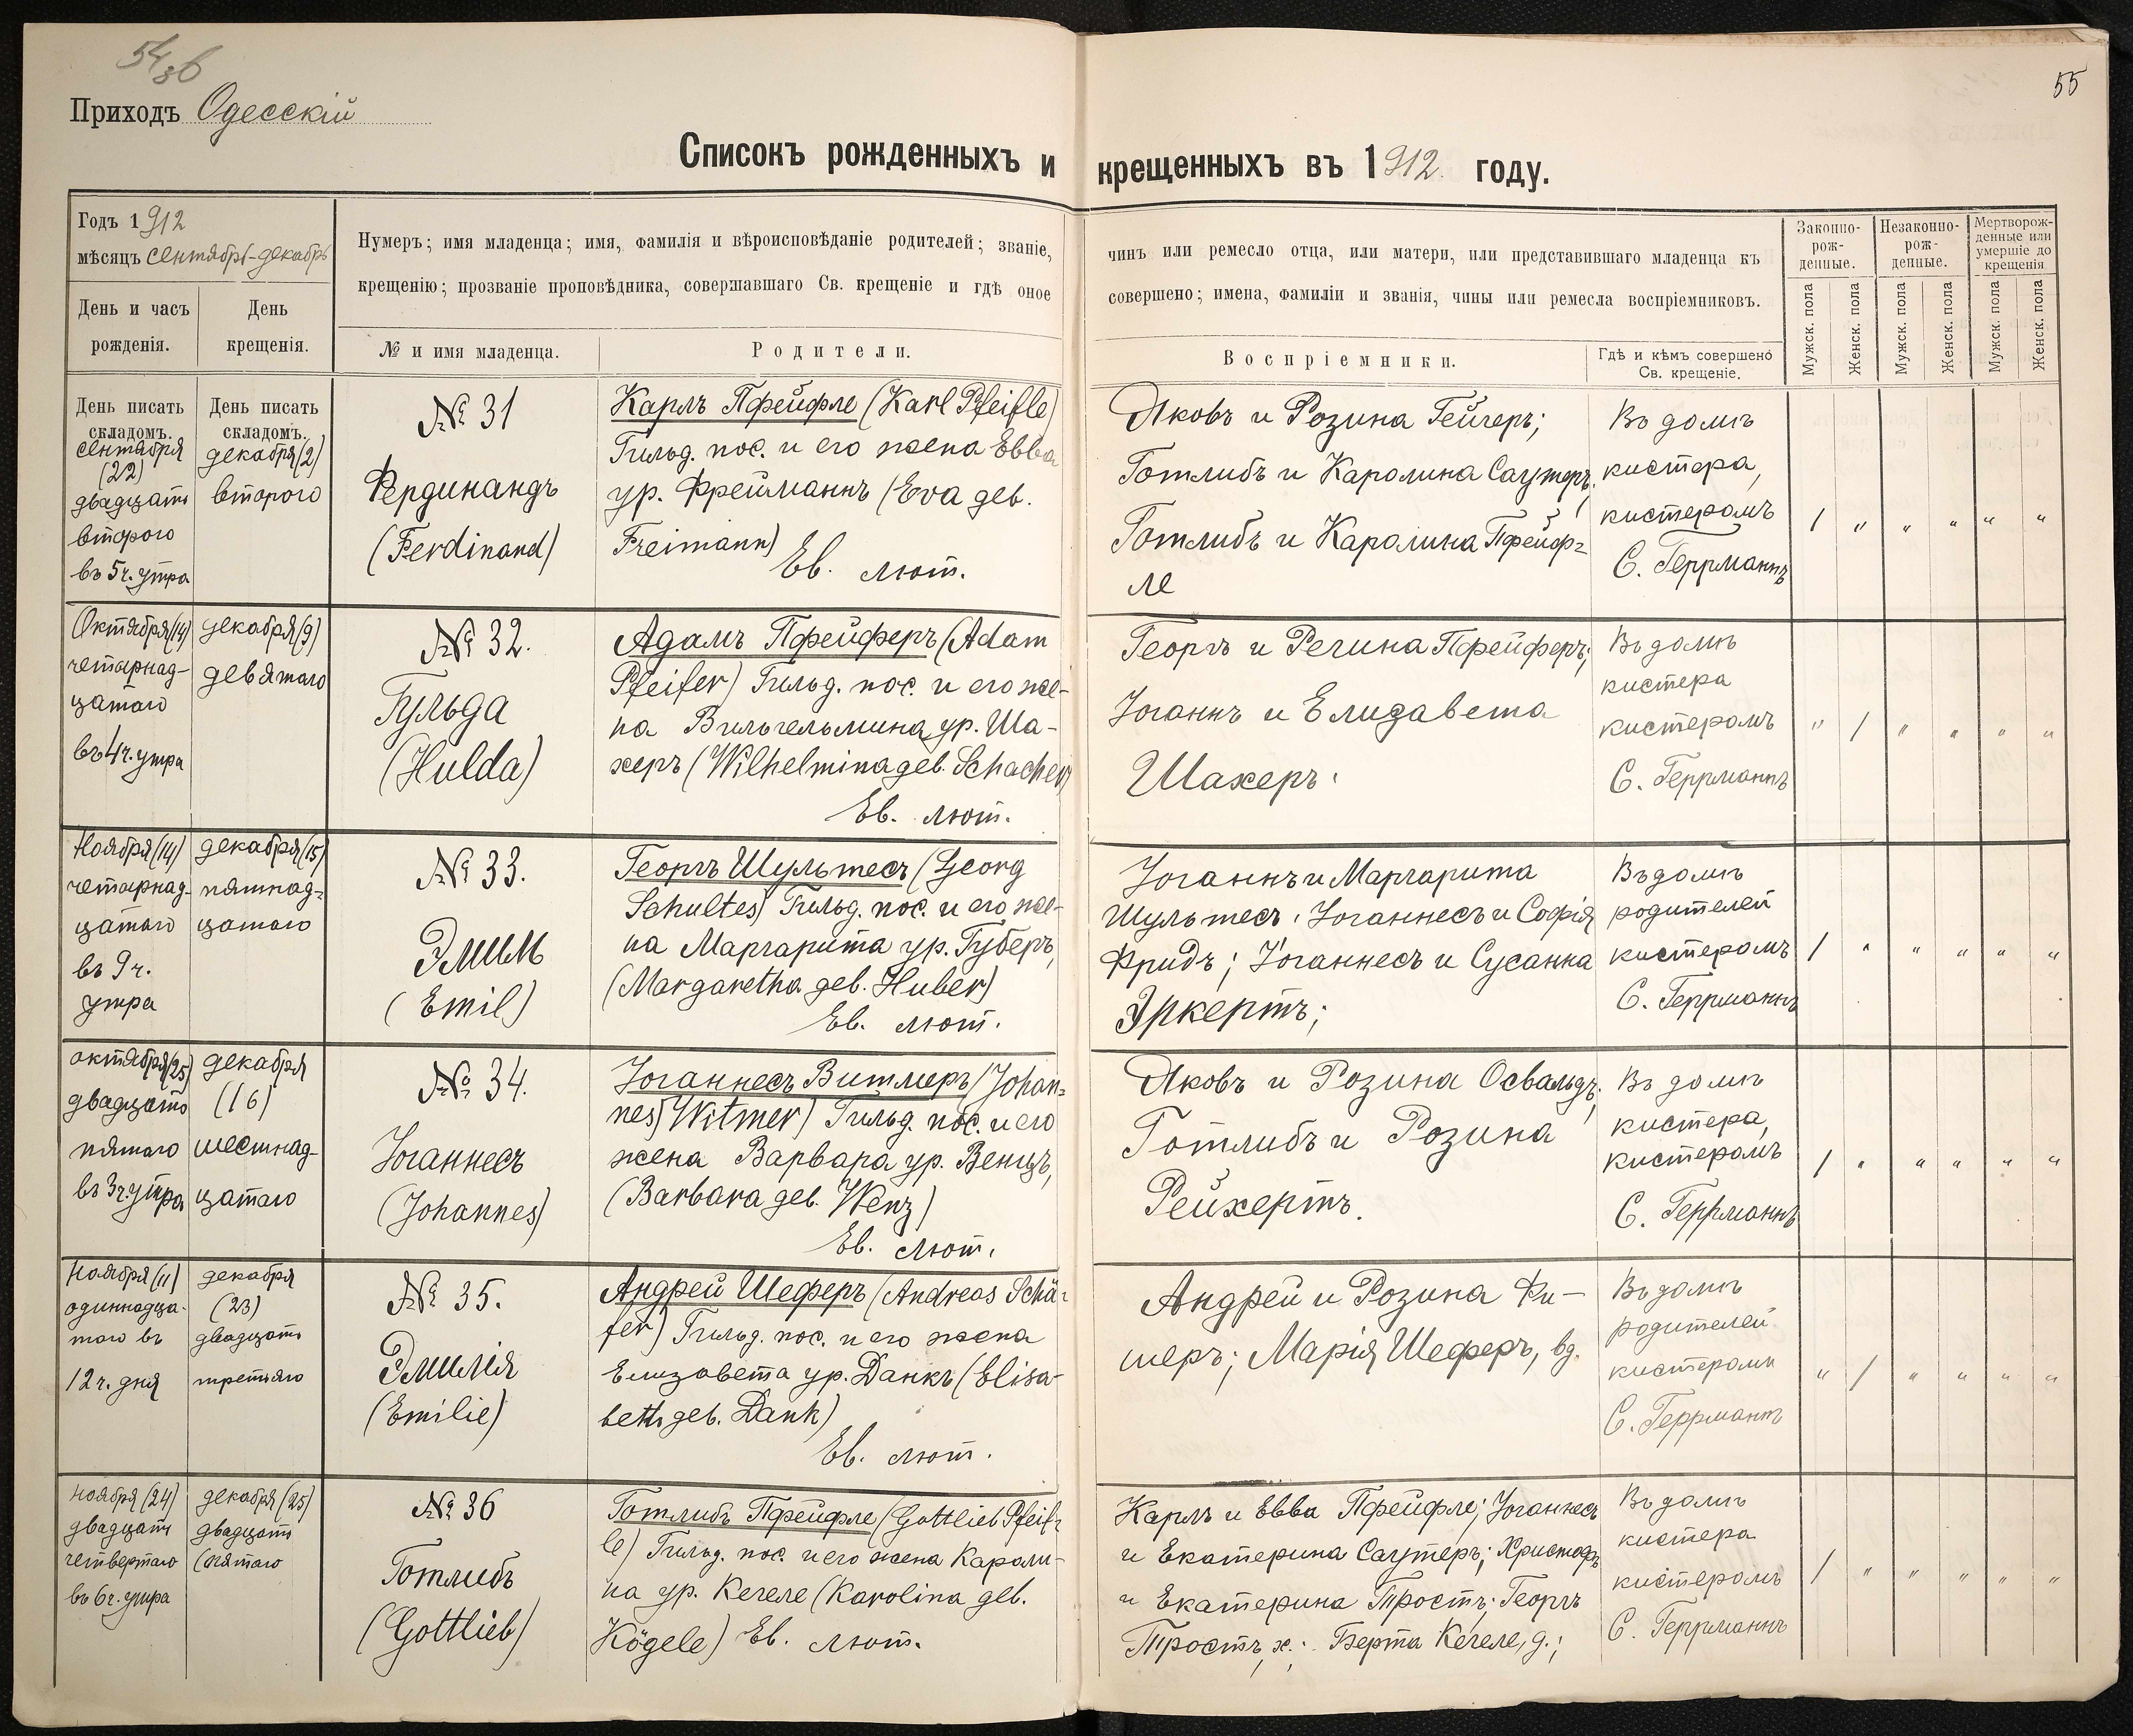 54
36
55
Приходъ Одесскій
Списокъ рожденныхъ и крещенныхъ въ 1912 году.
Годъ 1912
мѣсяцъ сентябрь-декабрь
День и часъ
рожденія.
День
крещенія.
Нумеръ; имя младенца; имя, фамилія и вѣроисповѣданіе родителей; званіе,
крещенію; прозваніе проповѣдника, совершавшаго Св. крещеніе и гдѣ оное
№ и имя младенца.
Родители.
чинъ или ремесло отца, или матери, или представившаго младенца къ
совершено; имена, фамиліи и званія, чины или ремесла воспріемниковъ.
Воспріемники.
Гдѣ и кѣмъ совершено
Св. крещеніе.
Законно-
рож-
денные.
Незаконно-
рож-
денные.
Мертворож-
денные или
умершіе до
крещенія
Мужск. пола
Женск. пола
Мужск. пола
Женск. пола
Мужск. пола
Женск. пола
День писать
складомъ.
сентября
(22)
двадцать
второго
въ 5 ч. утра
День писать
складомъ.
декабря (2)
второго
№ 31
Фердинандъ
(Ferdinand)
Карлъ Пфейфле (Karl Pfeifle)
Гильд. пос. и его жена Евва
ур. Фрейманнъ (Eva geb.
Freimann)
Ев. лют.
Яковъ и Розина Гейгеръ;
Готлибъ и Каролина Саутеръ;
Готлибъ и Каролина Пфейф=
ле
Въ домѣ
кистера,
кистеромъ
С. Геррманнъ
/ " " " " "
Октября (14)
четырнад-
цатаго
въ 4 ч. утра
декабря (9)
девятаго
№ 32.
Гульда
(Hulda)
Адамъ Пфейферъ (Adam
Pfeifer) Гильд. пос. и его же-
на Вильгельмина ур. Ша-
херъ (Wilhelmina geb. Schacher)
Ев. лют.
Георгъ и Регина Пфейферъ;
Іоганнъ и Елизавета
Шахеръ.
Въ домѣ
кистера
кистеромъ
С. Геррманнъ
" / " " " "
Ноября (14)
четырнад-
цатаго
въ 9 ч.
утра
декабря (15)
пятнад=
цатаго
№ 33.
Эмиль
(Emil)
Георгъ Шультесъ (Georg
Schultes) Гильд. пос. и его же-
на Маргарита ур. Губеръ,
(Margaretha geb. Huber)
Ев. лют.
Іоганнъ и Маргарита
Шультесъ; Іоганнесъ и Софія
Фридъ; Іоганнесъ и Сусанна
Эркертъ;
Въ домѣ
родителей
кистеромъ
С. Геррманнъ
/ " " " " "
октября (25)
двадцать
пятаго
въ 3 ч. утра
декабря
(16)
шестнад-
цатаго
№ 34.
Іоганнесъ
(Johannes)
Іоганнесъ Витмеръ (Johan=
nes) Witmer) Гильд. пос. и его
жена Варвара ур. Венцъ,
(Barbara geb. Wenz)
Ев. лют.
Яковъ и Розина Освальдъ;
Готлибъ и Розина
Рейхертъ.
Въ домѣ
кистера,
кистеромъ
С. Геррманнъ
/ " " " " "
Ноября (11)
одиннадца-
таго въ
12 ч. дня
декабря
(23)
двадцать
третьяго
№ 35.
Эмилія
(Emilie)
Андрей Шеферъ (Andreas Schä=
fer) Гильд. пос. и его жена
Елизавета ур. Данкъ (Elisa-
beth geb. Dank)
Ев. лют.
Андрей и Розина Фи-
шеръ; Марія Шеферъ, вд.
Въ домѣ
родителей
кистеромъ
С. Геррманъ
" / " " " "
ноября (24)
двадцать
четвертаго
въ 6 ч. утра
декабря (25)
двадцать
пятаго
№ 36
Готлибъ
(Gottlieb)
Готлибъ Пфейфле (Gottlieb Pfeif=
le) Гильд. пос. и его жена Кароли-
на ур. Кегеле (Karolina geb.
Kögele) Ев. лют.
Карлъ и Евва Пфейфле; Іоганнесъ
и Екатерина Саутеръ; Христофъ
и Екатерина Тростъ; Георгъ
Тростъ, х.; Берта Кегеле, д.;
Въ домѣ
кистера
кистеромъ
С. Геррманнъ
/ " " " " "